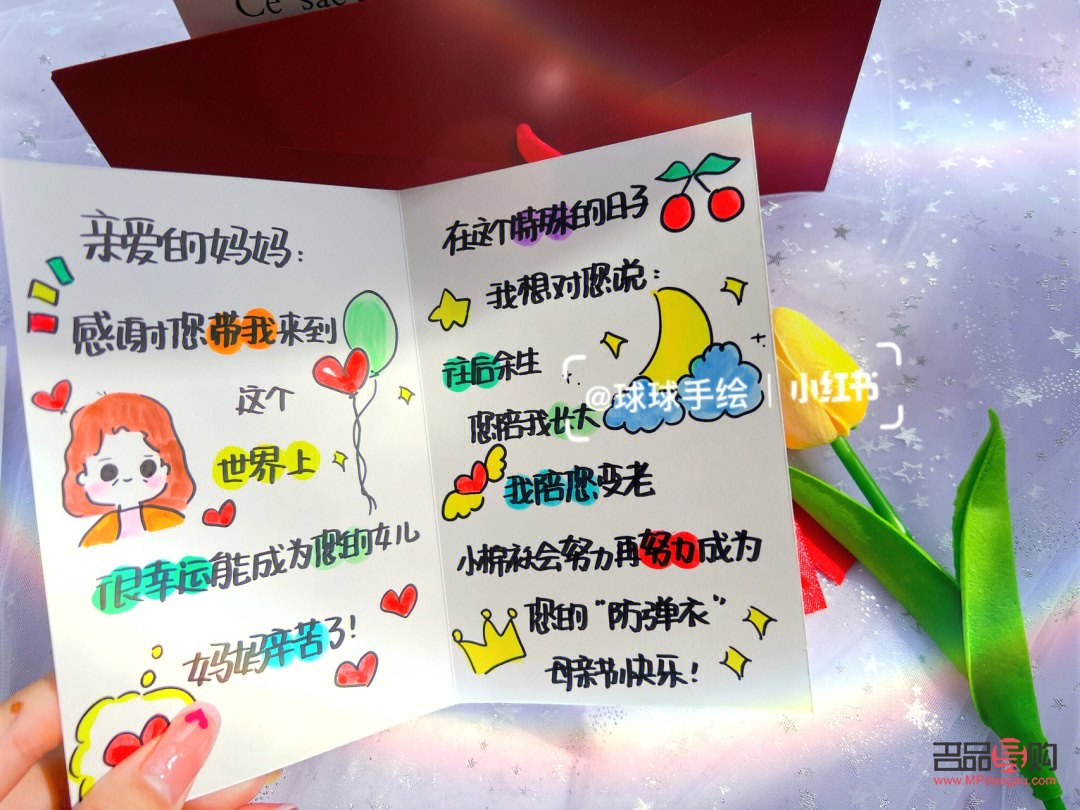 Ce sac
亲爱的妈妈：
感谢您带我来到
这个
世界上
很幸运能成为您的女儿
妈妈辛苦了！
在这个特殊的日子
我想对您说：
往后余生
您陪我长大
我陪您变老
小棉袄会努力再努力成为
您的“防弹衣”
母亲节快乐！
@球球手绘 | 小红书
名品导购